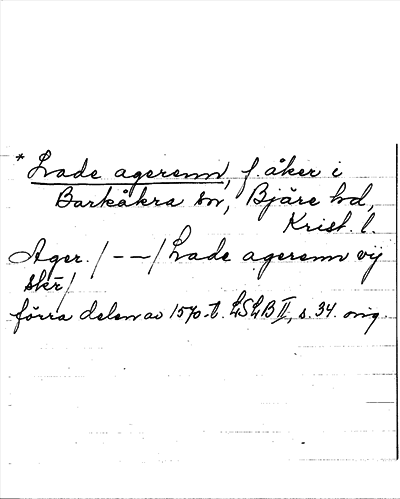 * Lade agerenn, f. åker i
Barkåkra sn, Bjäre hd,
Krist. l.
Ager. / - - / Lade agerenn vij
skr̄ /
förra delen av 1570-t. LSLB II, s. 34. orig.